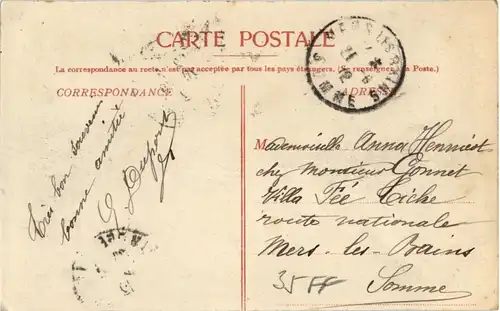 CARTE POSTALE
La correspondance au recto n'est pas acceptée par tous les pays étrangers. (Se renseigner à la Poste.)
CORRESPONDANCE
ADRES
Très bon souvenir
bonne amitié
G. Dupont
Mademoiselle Anna
chez Monsieur Gonnet
Villa Fée Eiche
route nationale
Mers-les-Bains
Somme
35 FF
MERS LES BAINS
SOMME